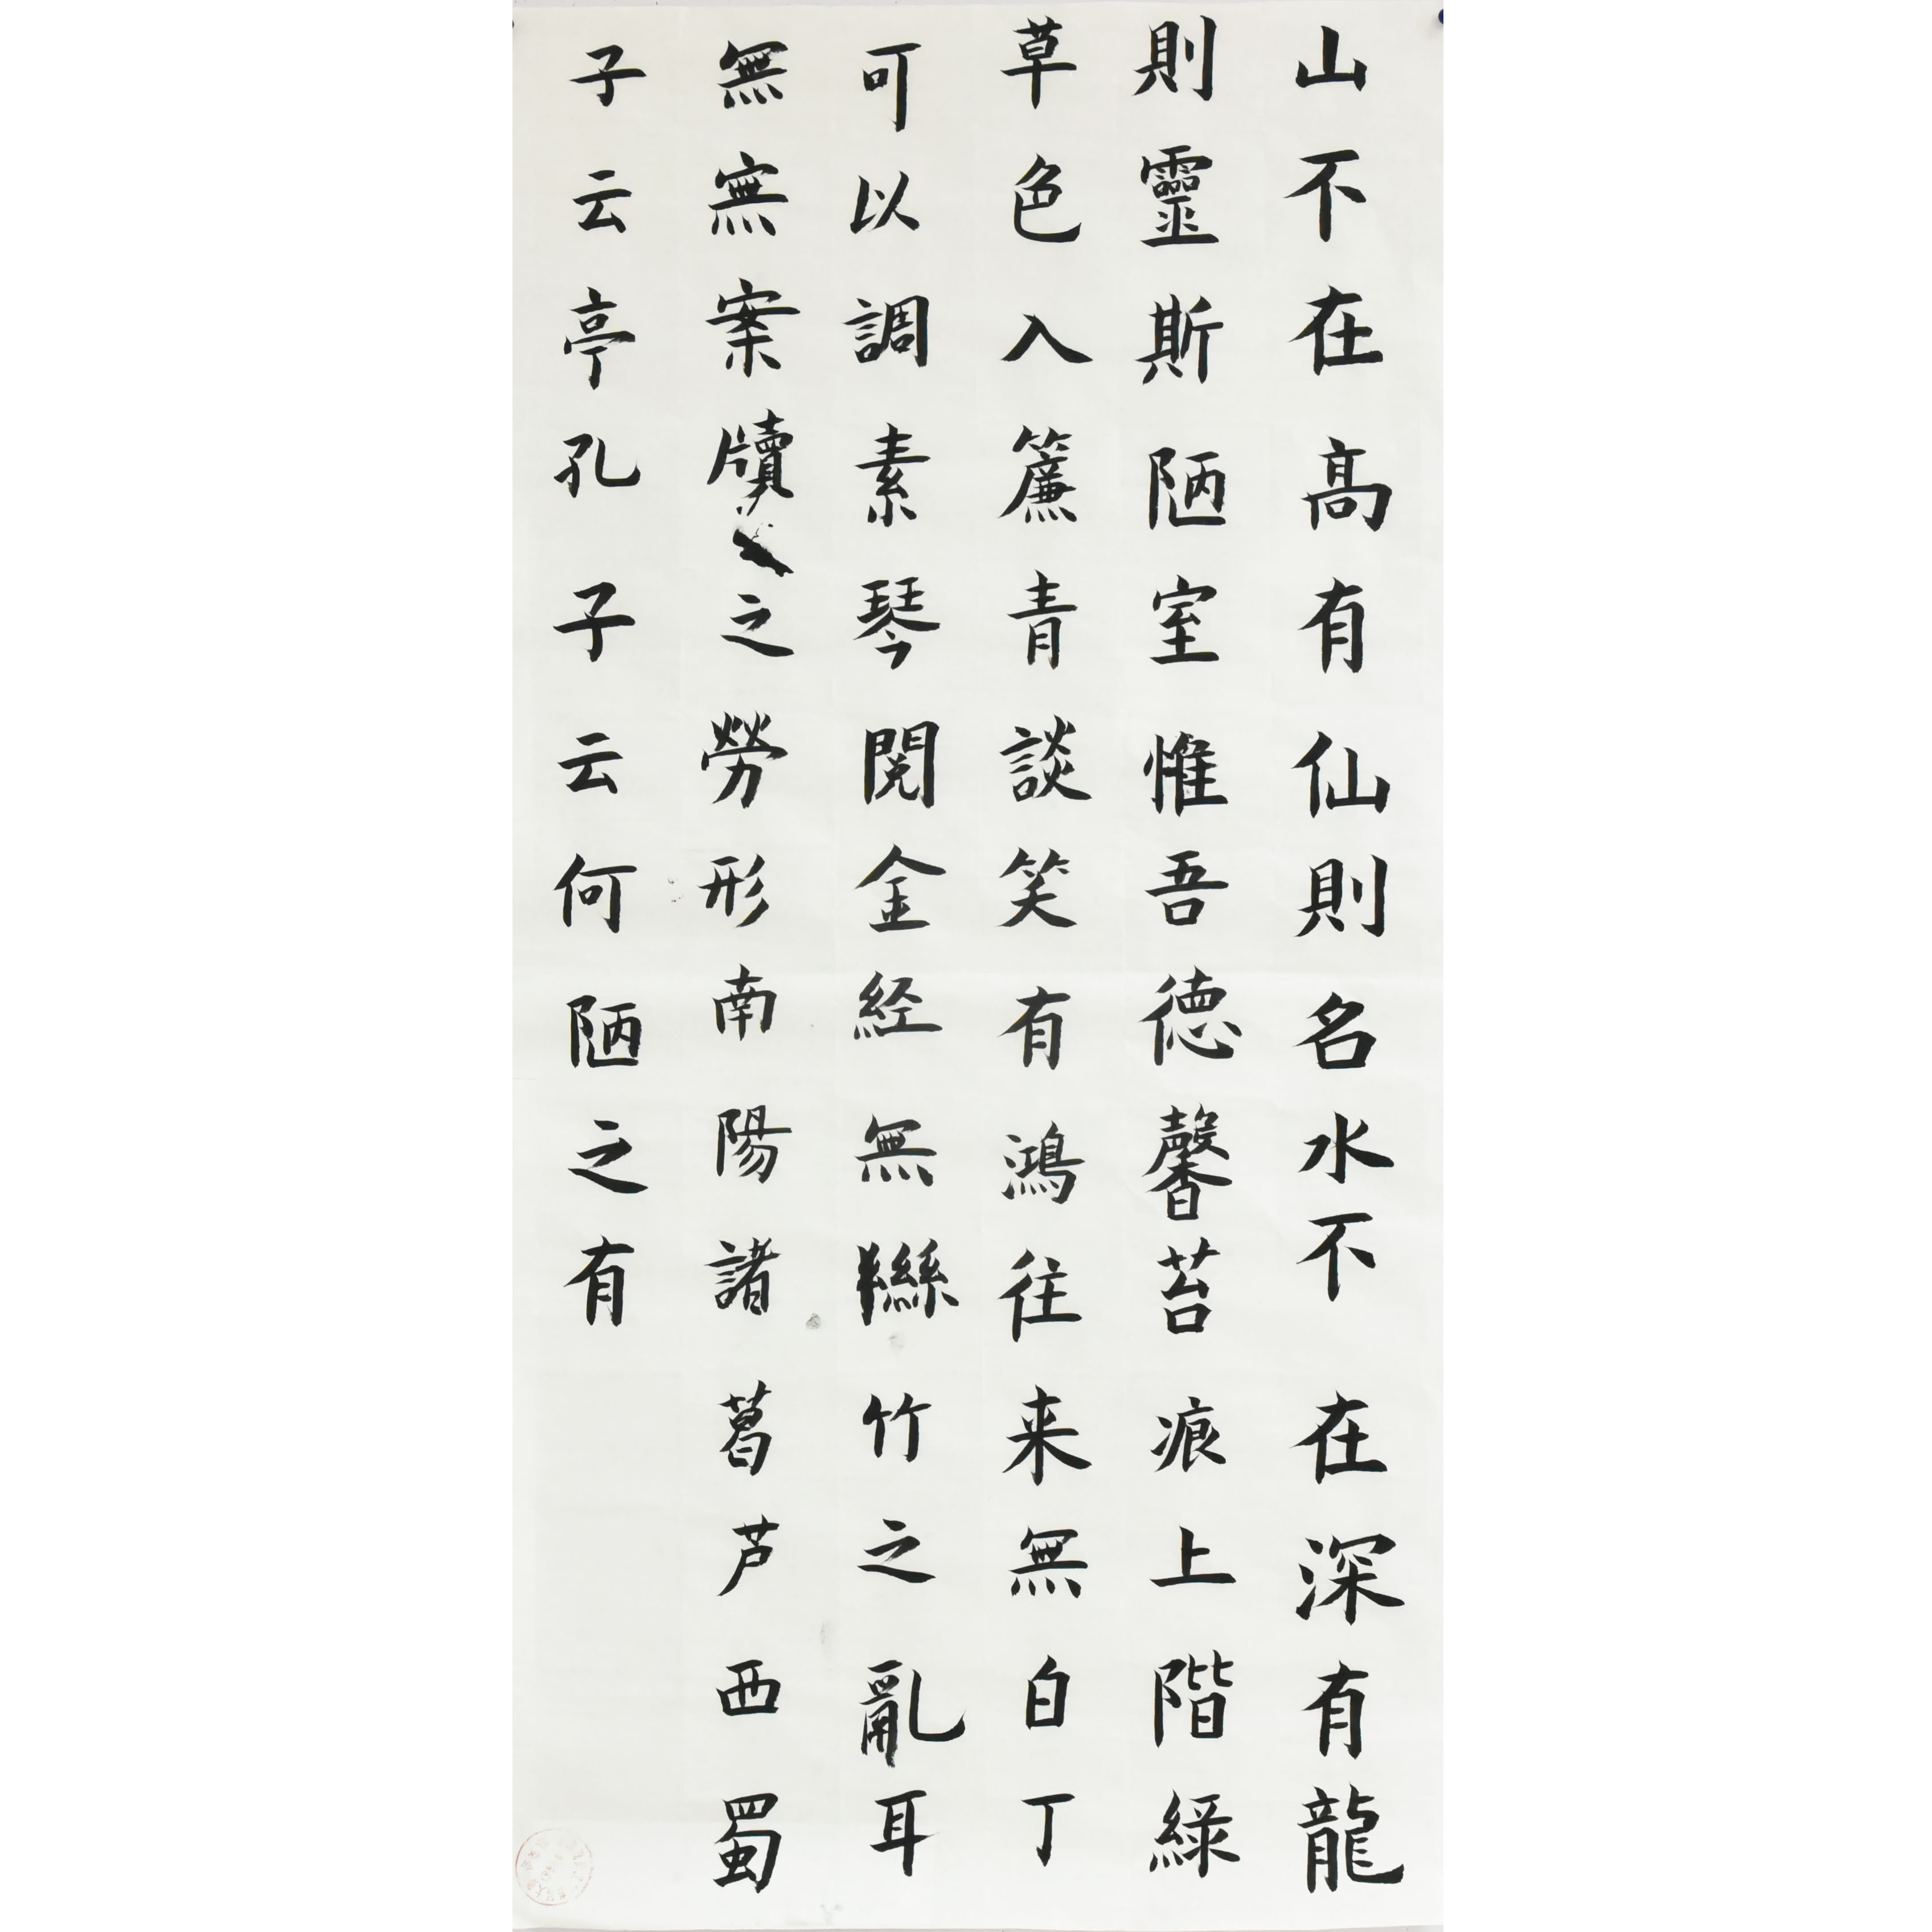 山不在高有仙則名水不在深有龍
則靈斯陋室惟吾德馨苔痕上階綠
草色入簾青談笑有鴻往来無白丁
可以調素琴閱金経無絲竹之亂耳
無無案牘之勞形南陽諸葛芦西蜀
子云亭孔子云何陋之有